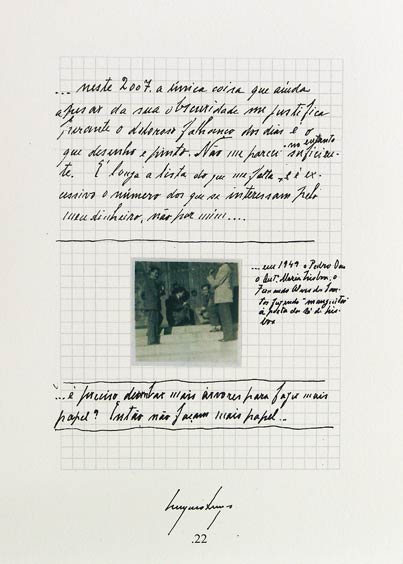 ... neste 2007. a única coisa que ainda
apesar da sua obscuridade me justifica
perante o doloroso falhanço dos dias é o
que desenho e pinto. Não me parece no entanto suficien-
te. É longa a lista do que me falta, e é ex-
cessivo o número dos que se interessam pelo
meu dinheiro, não por mim....
...em 1949 o Pedro Oom
o Ant. Maria Lisboa, o
Fernando Alves dos San-
tos fazendo
à porta da
boa
...é preciso derrubar mais árvores para fazer mais
papel? Então não façam mais papel...
.22